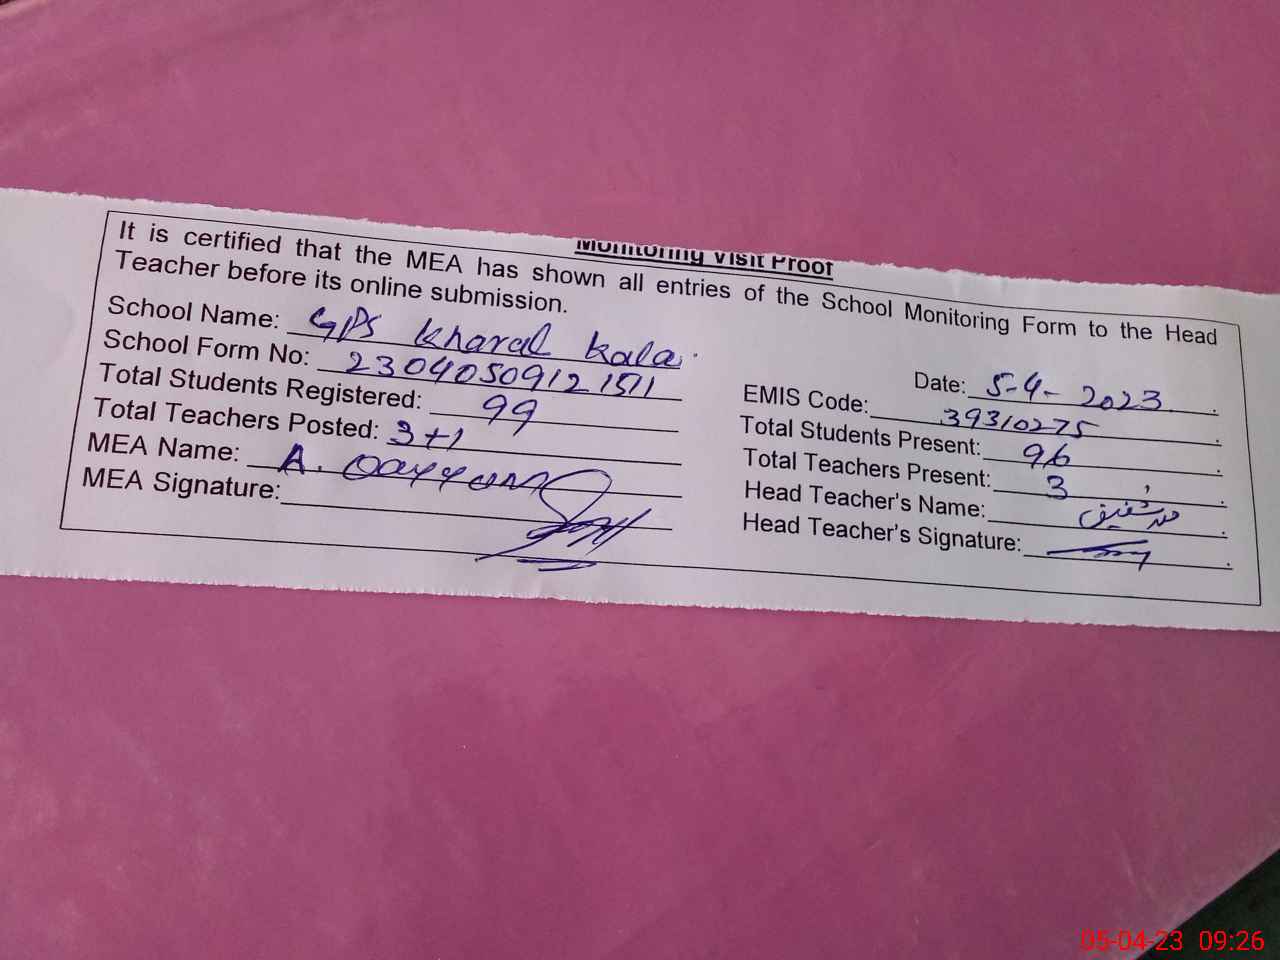 Monitoring Visit Proof
It is certified that the MEA has shown all entries of the School Monitoring Form to the Head
Teacher before its online submission.
School Name: GPS Kharal Kala.
Date: 5-4-2023.
School Form No: 23040509121511
EMIS Code: 39310275.
Total Students Registered: 99
Total Students Present: 96.
Total Teachers Posted: 3+1
Total Teachers Present: 3.
MEA Name: A. Qayyum
Head Teacher's Name: محمد شفیق.
MEA Signature:
Head Teacher's Signature:
05-04-23 09:26